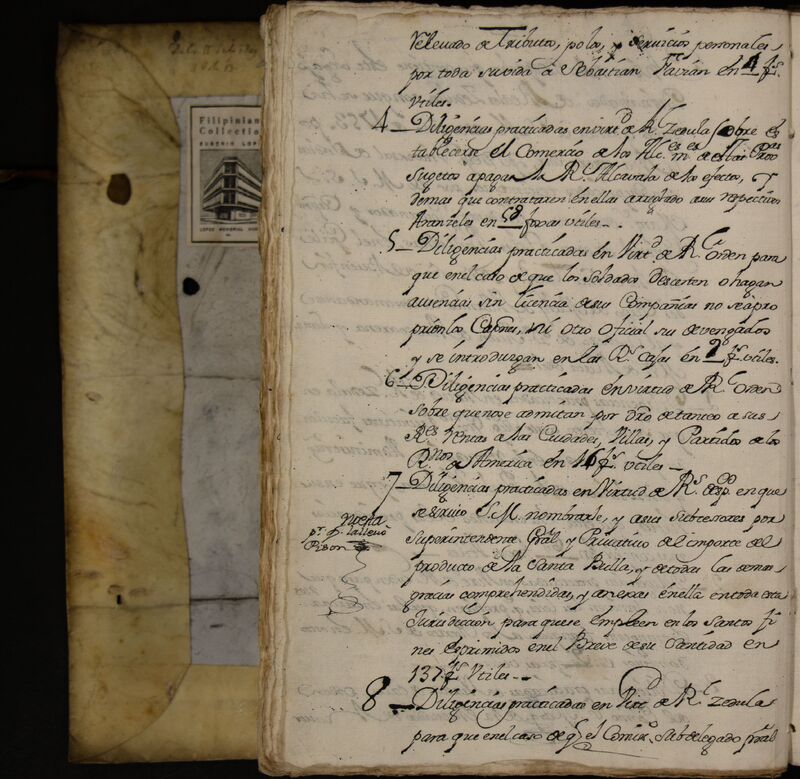 Filipinian
Collectio
EUGENIO LOP
LOPEZ MEMORIAL MUS
Relevado de Tributos, polos, y servicios personales
por toda su vida à Sebastian Favian en 4 f.s
Utiles.
4 — Diligencias practicadas en virt.d de R.l Zedula sobre es
tablecerse el Comercio de los Alc.es m.es de estas Prov.as
Sugetos a pagar la R.l Alcavala de los efectos, y
demas que contrataren en ellas arreglado a sus respectivos
Aranzeles en foxas utiles —
5 — Diligencias practicadas en Virt.d de R.l orden para
que en el caso de que los Soldados deserten o hagan
ausencias sin licencia de sus Compañias no se apro
prien los Cap.nes, ni otro oficial sus devengados
y se introduzgan en las R.s Caxas en 2 f.s utiles.
6 — Diligencias practicadas en virtud de R.l Orden
sobre que no se admitan por dro de tanteo a sus
R.es Ventas a las Ciudades, Villas, y Partidos de los
R.nos de America en 16 f.s utiles —
7 — Diligencias practicadas en Virtud de R.s desp.o en que
se sirvio S.M. nombrarle, y a sus Subcesores por
Superintendente Gral y Privativo del importe del
producto de la Santa Bulla, y de todas las demas
gracias comprehendidas, y anexas en ella en toda esta
Jurisdiccion para que se empleen en los Santos fi
nes exprimidos en el Breve de su Santidad en
137 f.s Utiles —
8 — Diligencias practicadas en Virt.d de R.l Zedula
para que en el caso de q.e el Comis.o Subdelegado gral